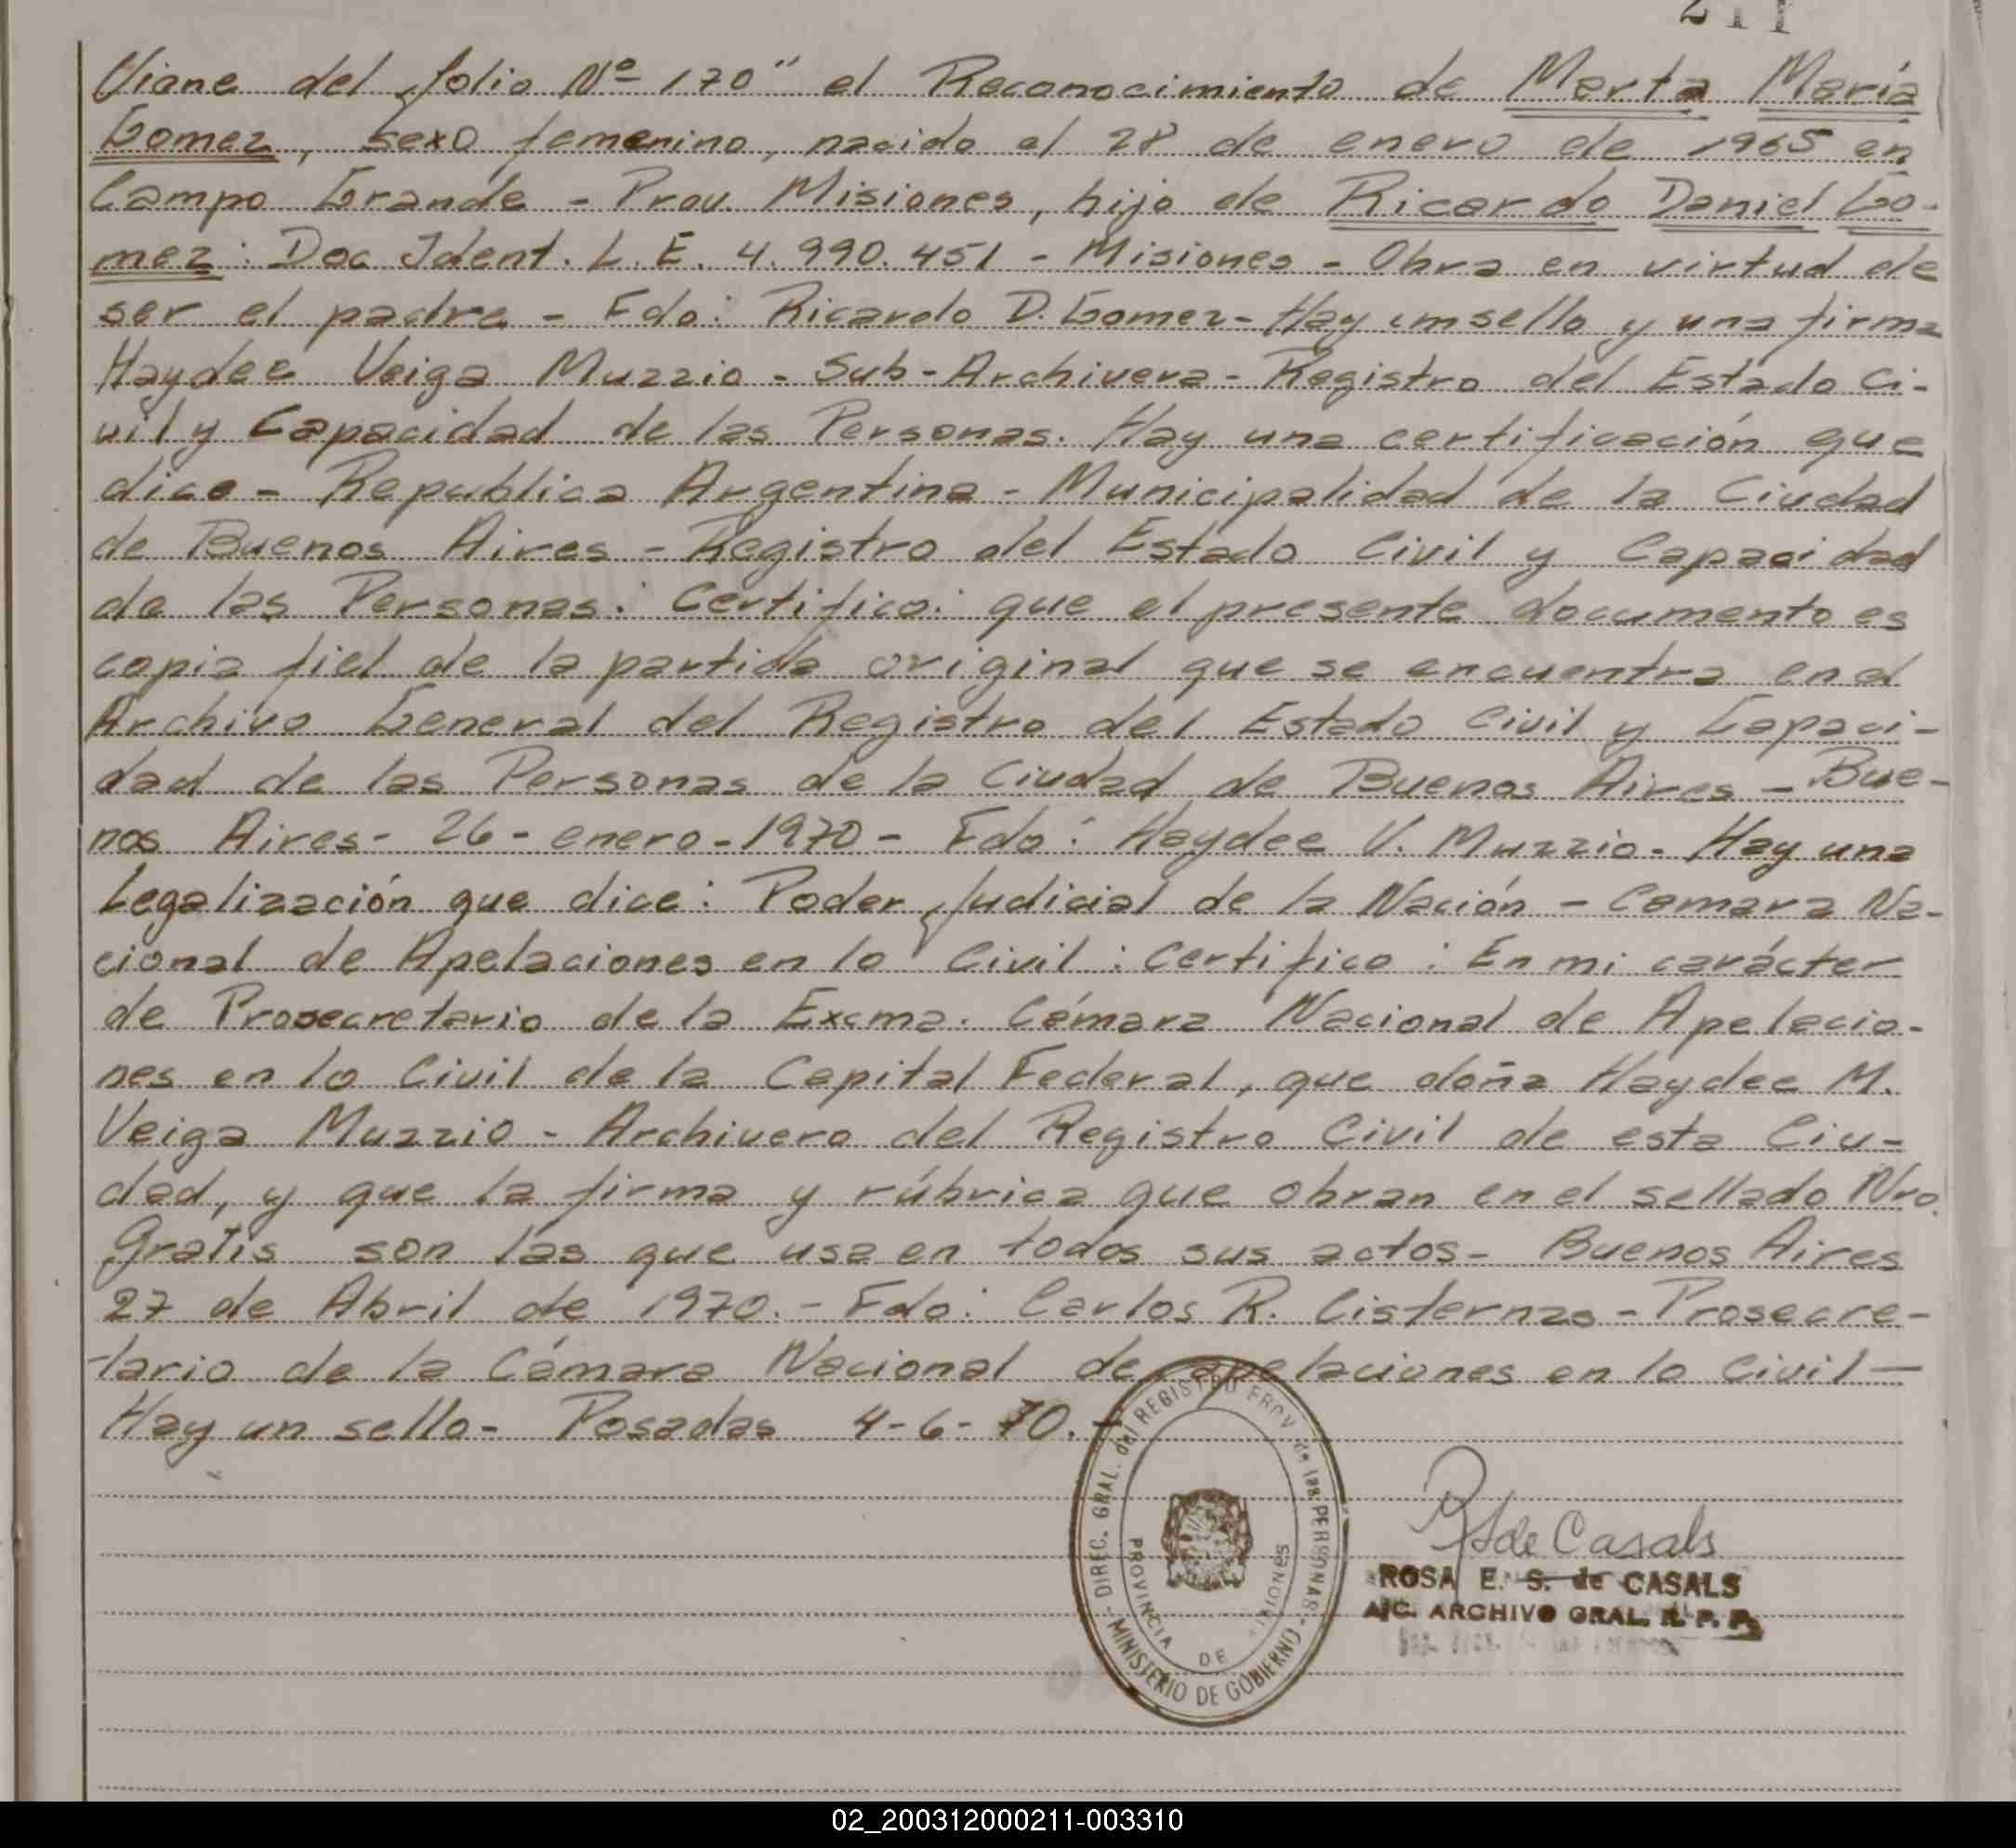 211
Viene del folio Nº 170" el Reconocimiento de Marta María
Gomez, sexo femenino, nacido el 28 de enero de 1965 en
Campo Grande - Prov. Misiones, hijo de Ricardo Daniel Go-
mez: Doc Ident. L. E. 4.990.451 - Misiones - Obra en virtud de
ser el padre - Fdo: Ricardo D. Gomez - Hay un sello y una firma
Haydee Veiga Muzzio - Sub-Archivera - Registro del Estado Ci-
vil y Capacidad de las Personas. Hay una certificación que
dice - Republica Argentina - Municipalidad de la Ciudad
de Buenos Aires - Registro del Estado Civil y Capacidad
de las Personas: Certifico: que el presente documento es
copia fiel de la partida original que se encuentra en el
Archivo General del Registro del Estado Civil y Capaci-
dad de las Personas de la Ciudad de Buenos Aires - Bue-
nos Aires - 26 - enero - 1970 - Fdo: Haydee V. Muzzio - Hay una
Legalización que dice: Poder Judicial de la Nación - Camara Na-
cional de Apelaciones en lo Civil: Certifico: En mi carácter
de Prosecretario de la Excma. Cámara Nacional de Apelacio-
nes en lo Civil de la Capital Federal, que doña Haydee M.
Veiga Muzzio - Archivero del Registro Civil de esta Ciu-
dad, y que la firma y rúbrica que obran en el sellado Nro.
Gratis son las que usa en todos sus actos - Buenos Aires
27 de Abril de 1970. - Fdo: Carlos R. Cisternas - Prosecre-
tario de la Cámara Nacional de apelaciones en lo Civil -
Hay un sello - Posadas 4-6-70. -
DIREC. GRAL. del REGISTRO PROV. de las PERSONAS
PROVINCIA DE MISIONES
MINISTERIO DE GOBIERNO
de Casals
ROSA E. S. de CASALS
A/C. ARCHIVO GRAL. R. P. P.
02_200312000211-003310